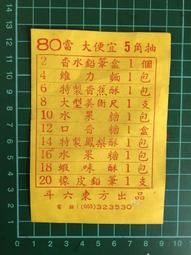 80當 大便宜 5角抽
2 香水鉛筆盒 1個
4 維力麵 1包
6 特製香蕉酥 1包
8 大型美術尺 1支
10 水果糖 1包
12 口香糖 1盒
14 特製鳳梨酥 1包
16 水果糖 1包
18 蝦味酥 1包
20 橡皮鉛筆 1支
斗六東方出品
電話:(055)323530